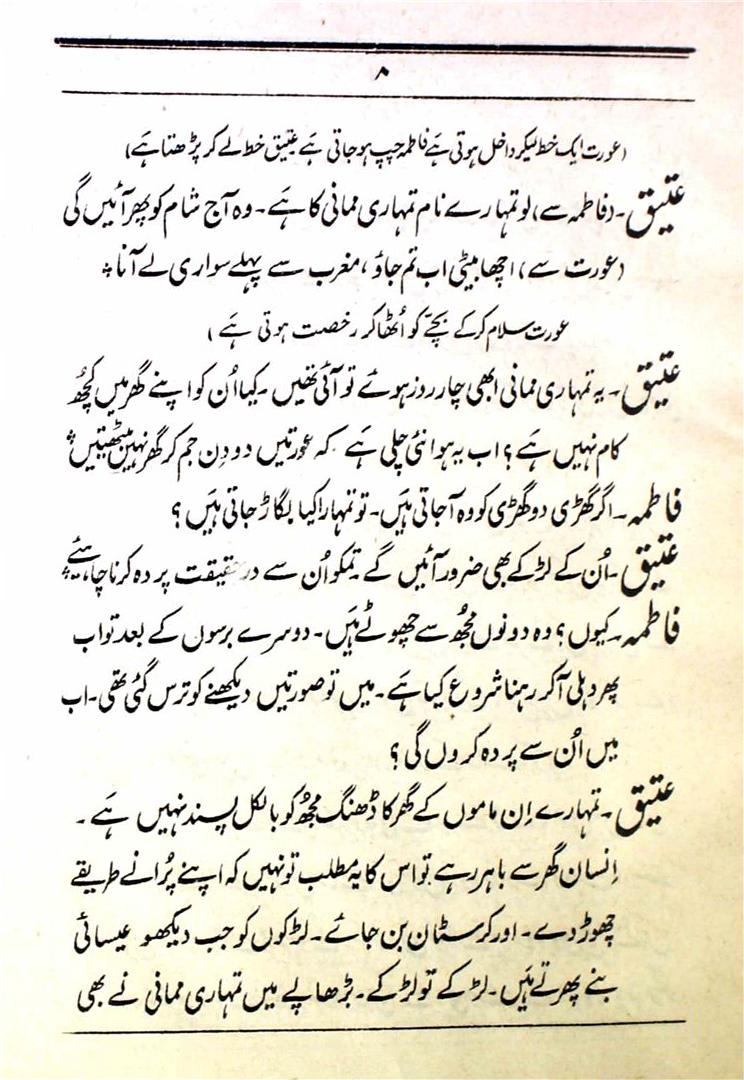 ۸
(عورت ایک خط لیکر داخل ہوتی ہے فاطمہ چپ ہو جاتی ہے عتیق خط لے کر پڑھتا ہے)
عتیق۔ (فاطمہ سے) لو تمہارے نام تمہاری ممانی کا ہے۔ وہ آج شام کو پھر آئیں گی
(عورت سے) اچھا بیٹی اب تم جاؤ، مغرب سے پہلے سواری لے آنا ۔
عورت سلام کر کے بچّے کو اُٹھا کر رخصت ہوتی ہے )
عتیق۔ یہ تمہاری ممانی ابھی چار روز ہوئے تو آئی تھیں۔ کیا اُن کو اپنے گھر میں کچھ
کام نہیں ہے؟ اب یہ ہوا نئی چلی ہے کہ عورتیں دو دِن جم کر گھر نہیں بیٹھتیں ۔
فاطمہ۔ اگر گھڑی دو گھڑی کو وہ آ جاتی ہیں۔ تو تمہارا کیا بگاڑ جاتی ہیں؟
عتیق۔ اُن کے لڑکے بھی ضرور آئیں گے تمکو اُن سے در حقیقت پردہ کرنا چاہیئے ۔
فاطمہ۔ کیوں؟ وہ دونوں مجھ سے چھوٹے ہیں۔ دوسرے برسوں کے بعد تو اب
پھر دہلی آکر رہنا شروع کیا ہے۔ میں تو صورتیں دیکھنے کو ترس گئی تھی۔ اب
میں اُن سے پردہ کروں گی؟
عتیق۔ تمہارے اِن ماموں کے گھر کا ڈھنگ مجھ کو بالکل پسند نہیں ہے۔
اِنسان گھر سے باہر رہے تو اس کا یہ مطلب تو نہیں کہ اپنے پُرانے طریقے
چھوڑ دے۔ اور کرسٹان بن جائے۔ لڑکوں کو جب دیکھو عیسائی
بنے پھرتے ہیں۔ لڑکے تو لڑکے۔ بڑھاپے میں تمہاری ممانی نے بھی